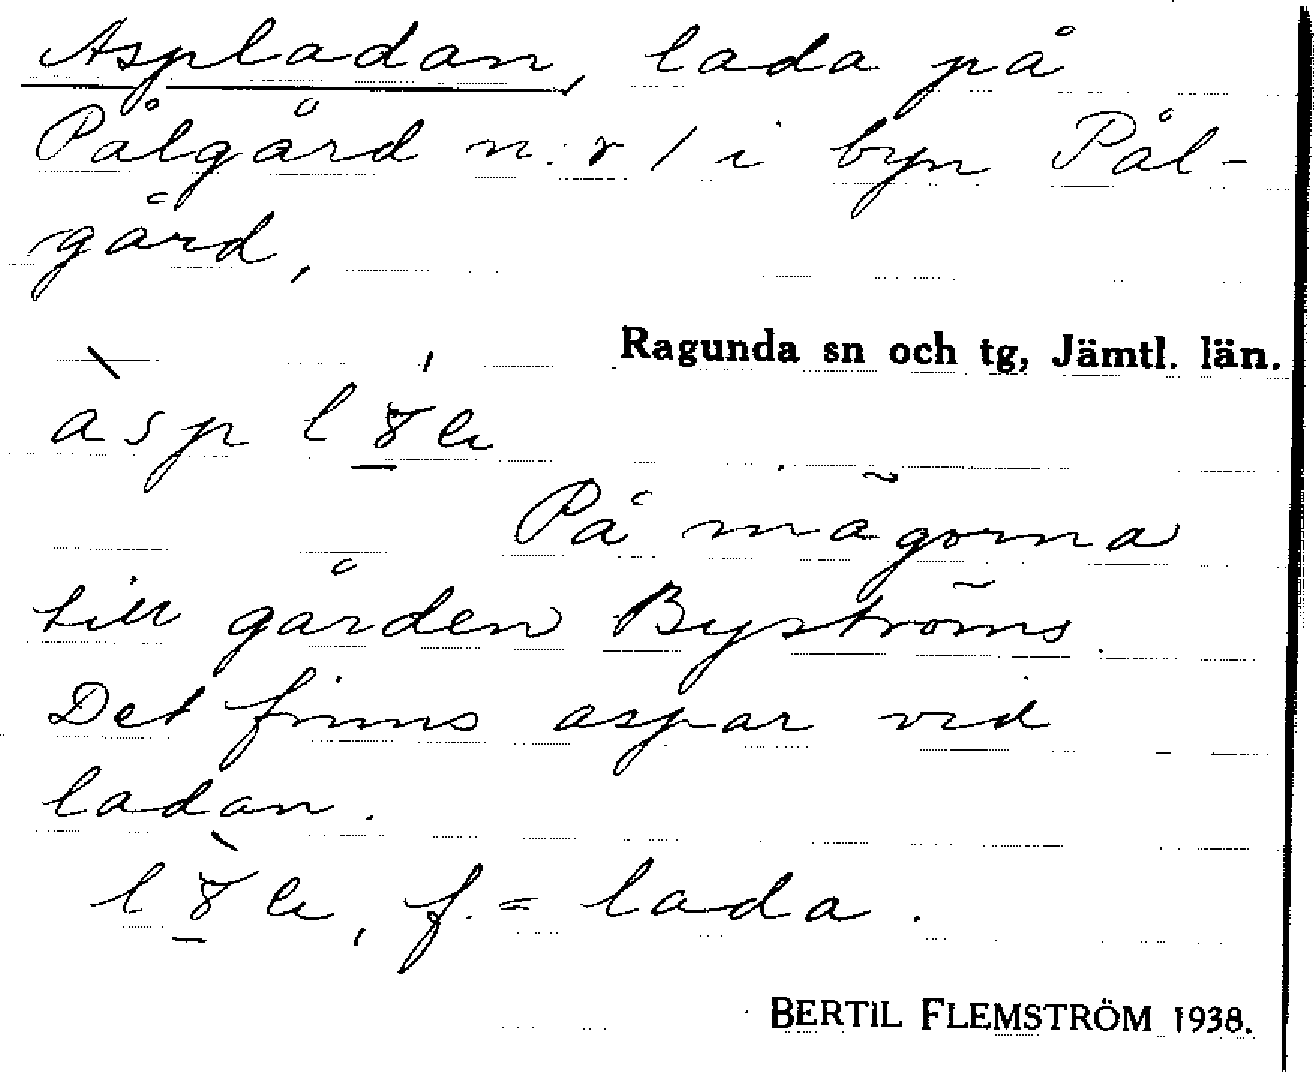 Aspladan, lada på
Pålgård n:r 1 i byn Pål-
gård,
Ragunda sn och tg, Jämtl. län.
asp
På mägorna
till gården Byströms.
Det finns aspar vid
ladan.
f. = lada.
BERTIL FLEMSTRÖM 1938.